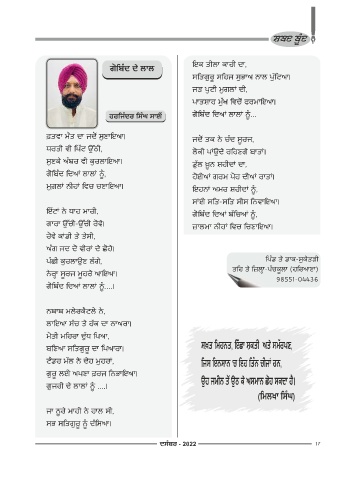 ਸ਼ਬਦ ਬੂੰਦ
ਗੋਬਿੰਦ ਦੇ ਲਾਲ
ਹਰਜਿੰਦਰ ਸਿੰਘ ਸਾਈਂ
ਫ਼ਤਵਾ ਮੌਤ ਦਾ ਜਦੋਂ ਸੁਣਾਇਆ।
ਧਰਤੀ ਵੀ ਪਿੱਟ ਉੱਠੀ,
ਸੁਣਕੇ ਅੰਬਰ ਵੀ ਕੁਰਲਾਇਆ।
ਗੋਬਿੰਦ ਦਿਆਂ ਲਾਲਾਂ ਨੂੰ,
ਮੁਗਲਾਂ ਨੀਹਾਂ ਵਿਚ ਚਣਾਇਆ।
ਇੱਟਾਂ ਨੇ ਧਾਹ ਮਾਰੀ,
ਗਾਰਾ ਉੱਚੀ-ਉੱਚੀ ਰੋਵੇ।
ਰੋਵੇ ਕਾਂਡੀ ਤੇ ਤੇਸੀ,
ਅੰਗ ਜਦ ਦੋ ਵੀਰਾਂ ਦੇ ਛੋਹੇ।
ਪੰਛੀ ਕੁਰਲਾਉਣ ਲੱਗੇ,
ਨੇਰ੍ਹਾ ਸੂਰਜ ਮੂਹਰੇ ਆਇਆ।
ਗੋਬਿੰਦ ਦਿਆਂ ਲਾਲਾਂ ਨੂੰ....।
ਨਬਾਬ ਮਲੇਰਕੋਟਲੇ ਨੇ,
ਲਾਇਆ ਸੱਚ ਤੇ ਹੱਕ ਦਾ ਨਾਅਰਾ।
ਮੋਤੀ ਮਹਿਰਾ ਦੁੱਧ ਪਿਆ,
ਬਣਿਆ ਸਤਿਗੁਰੂ ਦਾ ਪਿਆਰਾ।
ਟੋਡਰ ਮੱਲ ਨੇ ਦੇਹ ਮੁਹਰਾਂ,
ਗੁਰੂ ਲਈ ਅਪਣਾ ਫ਼ਰਜ਼ ਨਿਭਾਇਆ।
ਗੁਜਰੀ ਦੇ ਲਾਲਾਂ ਨੂੰ ....।
ਜਾ ਨੂਰੇ ਮਾਹੀ ਨੇ ਹਾਲ ਸੀ,
ਸਭ ਸਤਿਗੁਰੂ ਨੂੰ ਦੱਸਿਆ।
ਇਕ ਤੀਲਾ ਕਾਹੀ ਦਾ,
ਸਤਿਗੁਰੂ ਸਹਿਜ ਸੁਭਾਅ ਨਾਲ ਪੁੱਟਿਆ।
ਜੜ ਪੁਟੀ ਮੁਗਲਾਂ ਦੀ,
ਪਾਤਸ਼ਾਹ ਮੁੱਖ ਵਿਚੋਂ ਫਰਮਾਇਆ।
ਗੋਬਿੰਦ ਦਿਆਂ ਲਾਲਾਂ ਨੂੰ...
ਜਦੋਂ ਤਕ ਨੇ ਚੰਦ ਸੂਰਜ,
ਲੋਕੀ ਪਾਂਉਦੇ ਰਹਿਣਗੇ ਬਾਤਾਂ।
ਡੁੱਲ ਖ਼ੂਨ ਸ਼ਹੀਦਾਂ ਦਾ,
ਹੋਈਆਂ ਗਰਮ ਪੋਹ ਦੀਆਂ ਰਾਤਾਂ।
ਇਹਨਾਂ ਅਮਰ ਸ਼ਹੀਦਾਂ ਨੂੰ,
ਸਾਂਈ ਸਤਿ-ਸਤਿ ਸੀਸ ਨਿਵਾਇਆ।
ਗੋਬਿੰਦ ਦਿਆਂ ਬੱਚਿਆਂ ਨੂੰ,
ਜ਼ਾਲਮਾ ਨੀਹਾਂ ਵਿਚ ਚਿਣਾਇਆ।
ਪਿੰਡ ਤੇ ਡਾਕ-ਸੁਕੇਤੜੀ
ਤਹਿ ਤੇ ਜ਼ਿਲ੍ਹਾ-ਪੰਚਕੂਲਾ (ਹਰਿਆਣਾ)
98551-04436
ਸਖ਼ਤ ਮਿਹਨਤ, ਇਛਾ ਸ਼ਕਤੀ ਅਤੇ ਸਮੱਰਪਣ,
ਜਿਸ ਇਨਸਾਨ 'ਚ ਇਹ ਤਿੰਨ ਚੀਜ਼ਾਂ ਹਨ,
ਉਹ ਜਮੀਨ ਤੋਂ ਉਠ ਕੇ ਅਸਮਾਨ ਛੋਹ ਸਕਦਾ ਹੈ।
(ਮਿਲਖਾ ਸਿੰਘ)
ਦਸੰਬਰ - 2022
17